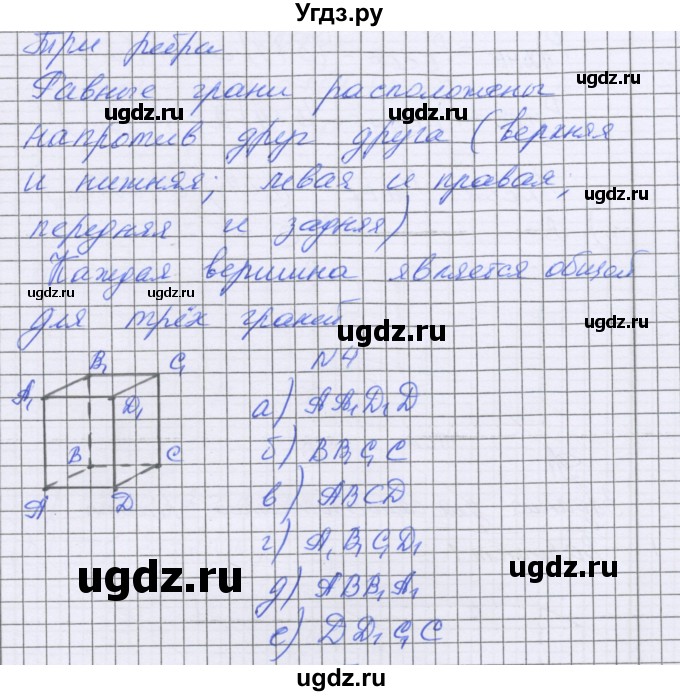 Угдз.ру
Три ребра
Равные грани расположены
напротив друг друга (верхняя
и нижняя; левая и правая;
передняя и задняя)
Каждая вершина является общей
для трёх граней
№4
B₁ C₁
A₁ D₁
B C
A D
а) AA₁D₁D
б) BB₁C₁C
в) ABCD
г) A₁B₁C₁D₁
д) ABB₁A₁
е) DD₁C₁C
ugdz.ru
ugdz.ru
ugdz.ru
ugdz.ru
ugdz.ru
ugdz.ru
ugdz.ru
ugdz.ru
ugdz.ru
ugdz.ru
ugdz.ru